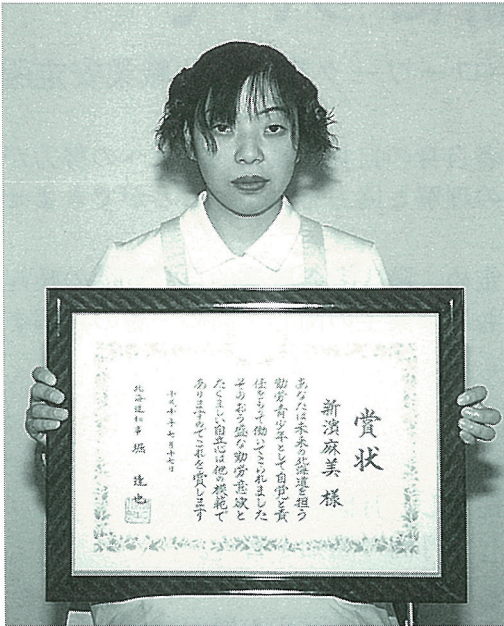 賞状
新濱麻美 様
あなたは未来の北海道を担う
勤労青少年として自覚と責
任をもって働いてこられました
そのおう盛な勤労意欲と
たくましい自立心は他の模範で
ありますのでこれを賞します
平成十年七月十七日
北海道知事 堀 達也